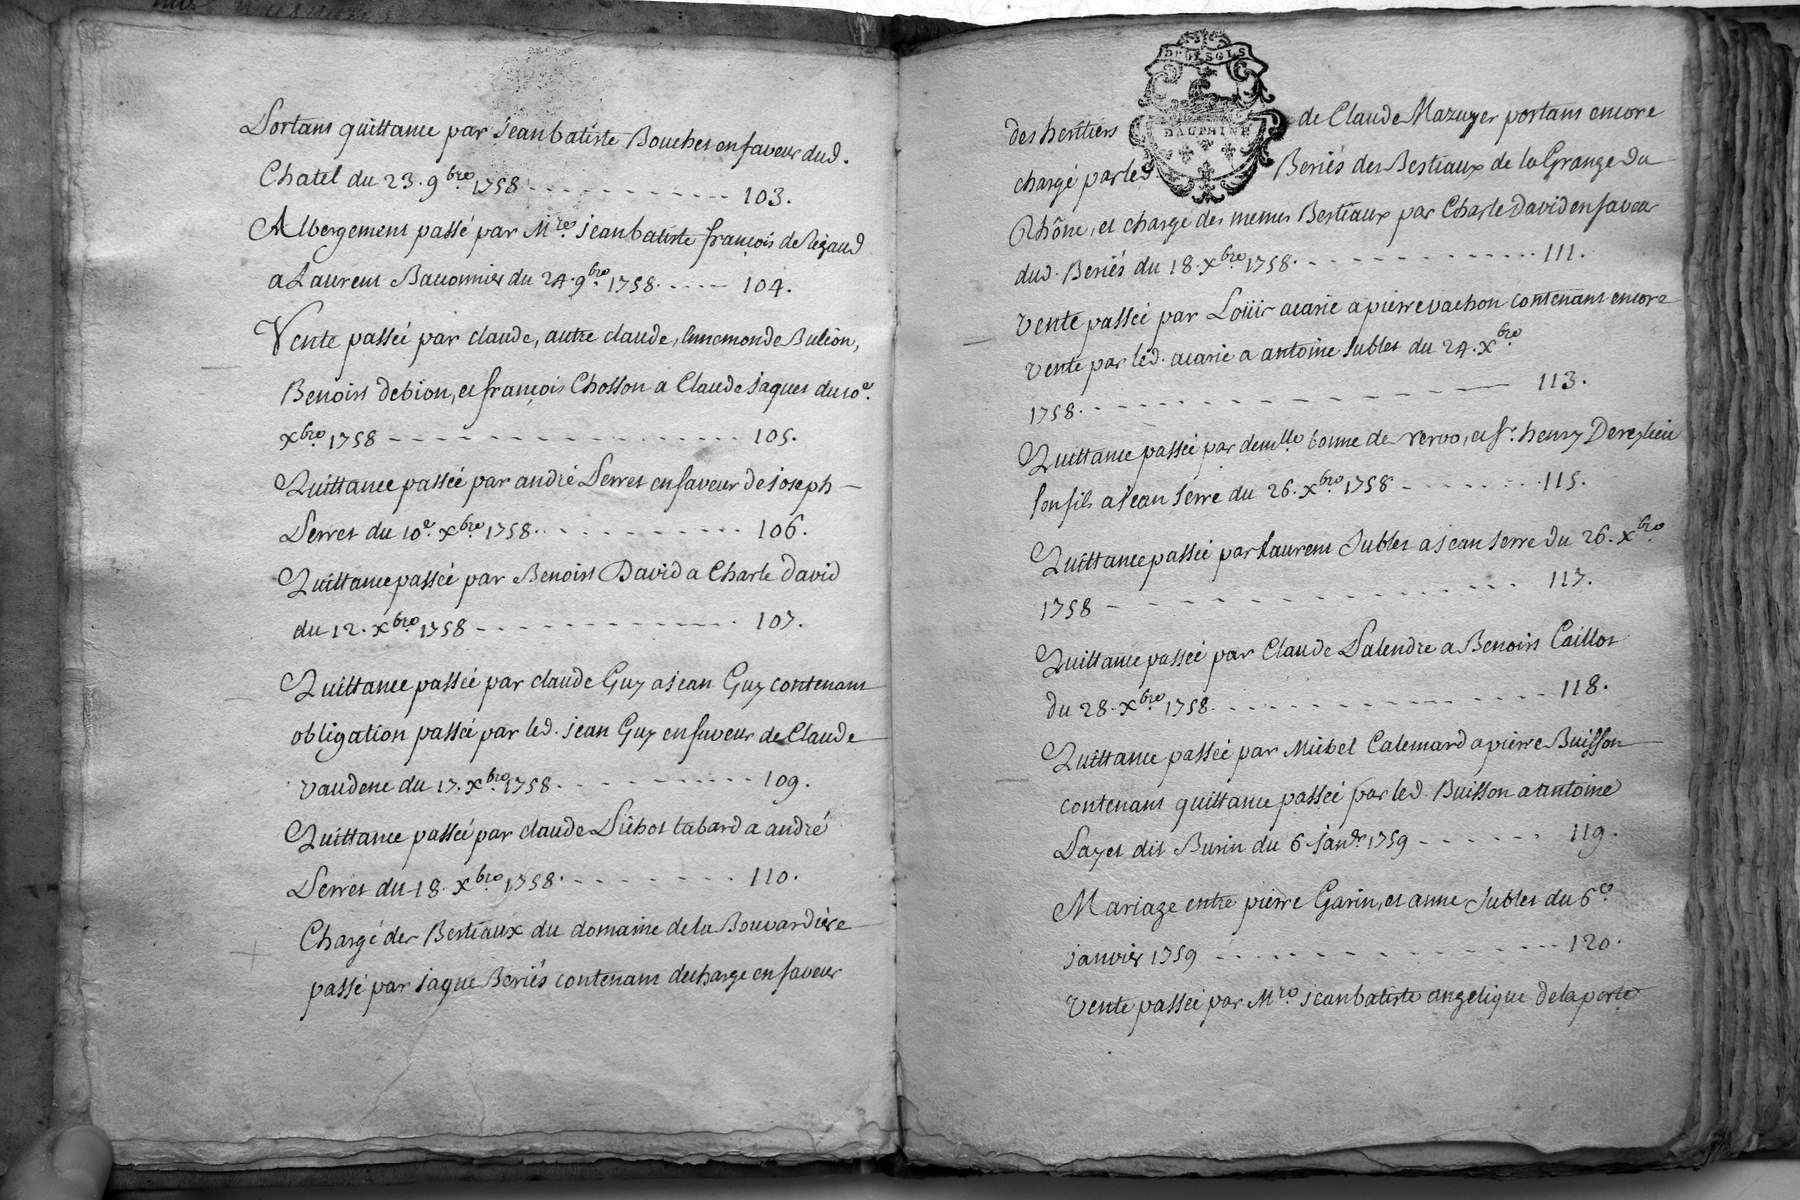 Portant quittance par jean batiste Bouchet en faveur dud.
Chatel du 23. 9bre. 1758 - - - - - - - - - - - 103.
Albergement passé par Mre. jean batiste françois de Rigaud
a Laurent Bauonnier du 24. 9bre. 1758. - - - - - 104.
Vente passée par claude, autre claude, Ennemonde Bulion,
Benoist debion, et françois Chosson a Claude jaques du 10e.
xbre. 1758 - - - - - - - - - - - - - - - - 105.
Quittance passée par andré Perret en faveur de joseph -
Perret du 10e. xbre. 1758. - - - - - - - - - - 106.
Quittance passée par Benoist David a Charle david
du 12. xbre. 1758 - - - - - - - - - - - - - 107.
Quittance passée par claude Guy a jean Guy contenant
obligation passée par led. jean Guy en faveur de Claude
vaudene du 17. xbre. 1758. - - - - - - - - - 109.
Quittance passée par claude Pichot tabard a andré
Perret du 18. xbre. 1758. - - - - - - - - - 110.
Chargé des Bestiaux du domaine de la Bouvardière
passé par jaque Beriés contenant decharge en faveur
DE 6 SOLS
DAUPHINE
des heritiers de Claude Mazuyer portant encore
chargé par led Beriés des Bestiaux de la Grange du
Rhône, et charge des memes Bestiaux par Charle David en faveur
dud. Beriés du 18. xbre. 1758. - - - - - - - - - - - - 111.
vente passée par Loüis acarie a pierre vachon contenant encore
vente par led. acarie a antoine Jublet du 24. xbre.
1758. - - - - - - - - - - - - - - - - 113.
Quittance passée par demlle. bonne de vervo, et sr. henry Dereylieu
son fils a jean Serre du 26. xbre. 1758 - - - - - - - 115.
Quittance passée par Laurent Jublet a jean Serre du 26. xbre.
1758 - - - - - - - - - - - - - - - - 117.
Quittance passée par Claude Palendre a Benoist Caillot
du 28. xbre. 1758. - - - - - - - - - - - - - 118.
Quittance passée par Michel Calemard a pierre Buisson
contenant quittance passée par led. Buisson a antoine
Payet dit Burin du 6. janvr. 1759 - - - - - - - 119.
Mariage entre pierre Garin, et anne Jublet du 6e.
janvier 1759 - - - - - - - - - - - - - - 120.
Vente passée par Mre. jean batiste angelique de la porte